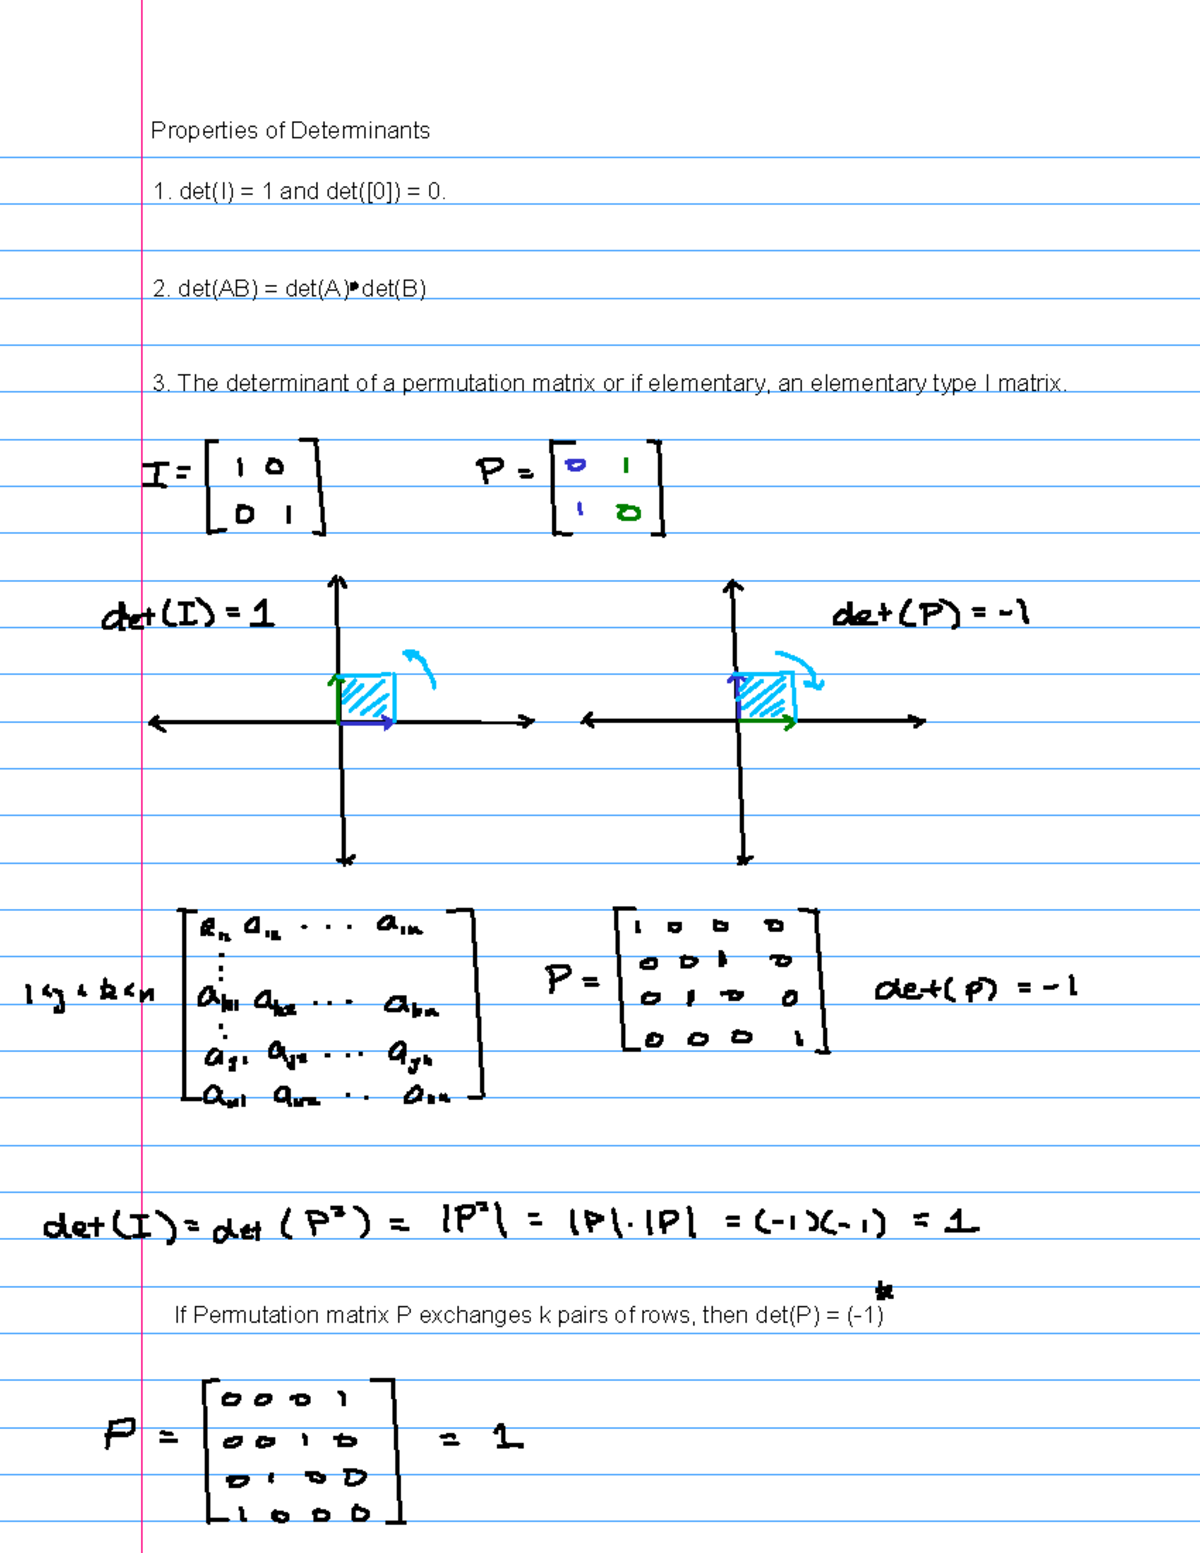 Properties of Determinants
1. det(I) = 1 and det([0]) = 0.
2. det(AB) = det(A)•det(B)
3. The determinant of a permutation matrix or if elementary, an elementary type I matrix.
I = [ 1 0
0 1 ]
P = [ 0 1
1 0 ]
det(I) = 1
det(P) = -1
a₁₂ ... a₁ₙ
⋮
aₖ₁ aₖ₂ ... aₖₙ
⋮
aⱼ₁ aⱼ₂ ... aⱼₙ
aₙ₁ aₙ₂ ..
P = [ 1 0 0 0
0 0 1 0
0 1 0 0
0 0 0 1 ]
det(P) = -1
det(I) = det(P²) = |P²| = |P|·|P| = (-1)(-1) = 1
If Permutation matrix P exchanges k pairs of rows, then det(P) = (-1)ᵏ
P = [ 0 0 0 1
0 0 1 0
0 1 0 0
1 0 0 0 ] = 1